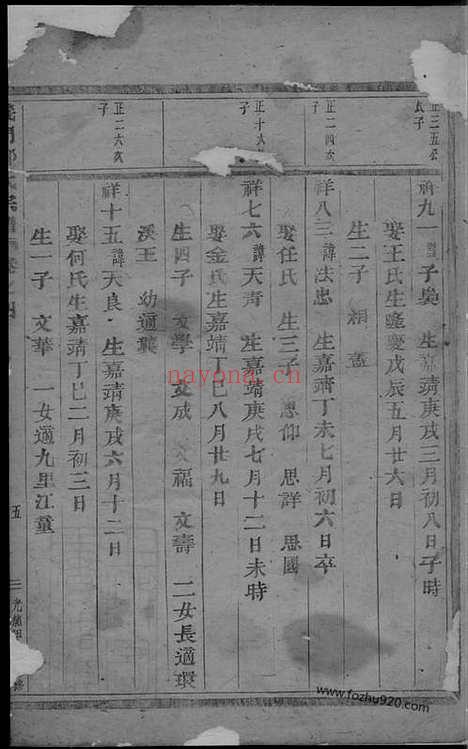 正三五公
長子
祥九一諱子奥 生嘉靖庚戌三月初八日子時
娶王氏生隆慶戊辰五月廿六日
生二子 相 孟
正二四次
子
祥八三諱法忠 生嘉靖丁未七月初六日卒
娶任氏 生三子 思仰 思詳 思國
正十六
子
祥七六諱天青 生嘉靖庚戌七月十二日未時
娶金氏生嘉靖丁巳八月廿九日
生四子 文學 文成 文福 文壽 二女長適環
溪王 幼適龔
正二六次
子
祥十五諱天良 生嘉靖庚戌六月十二日
娶何氏生嘉靖丁巳二月初三日
生一子 文華 一女適九里江童
五
光
navona.cn
www.fozhu920.com